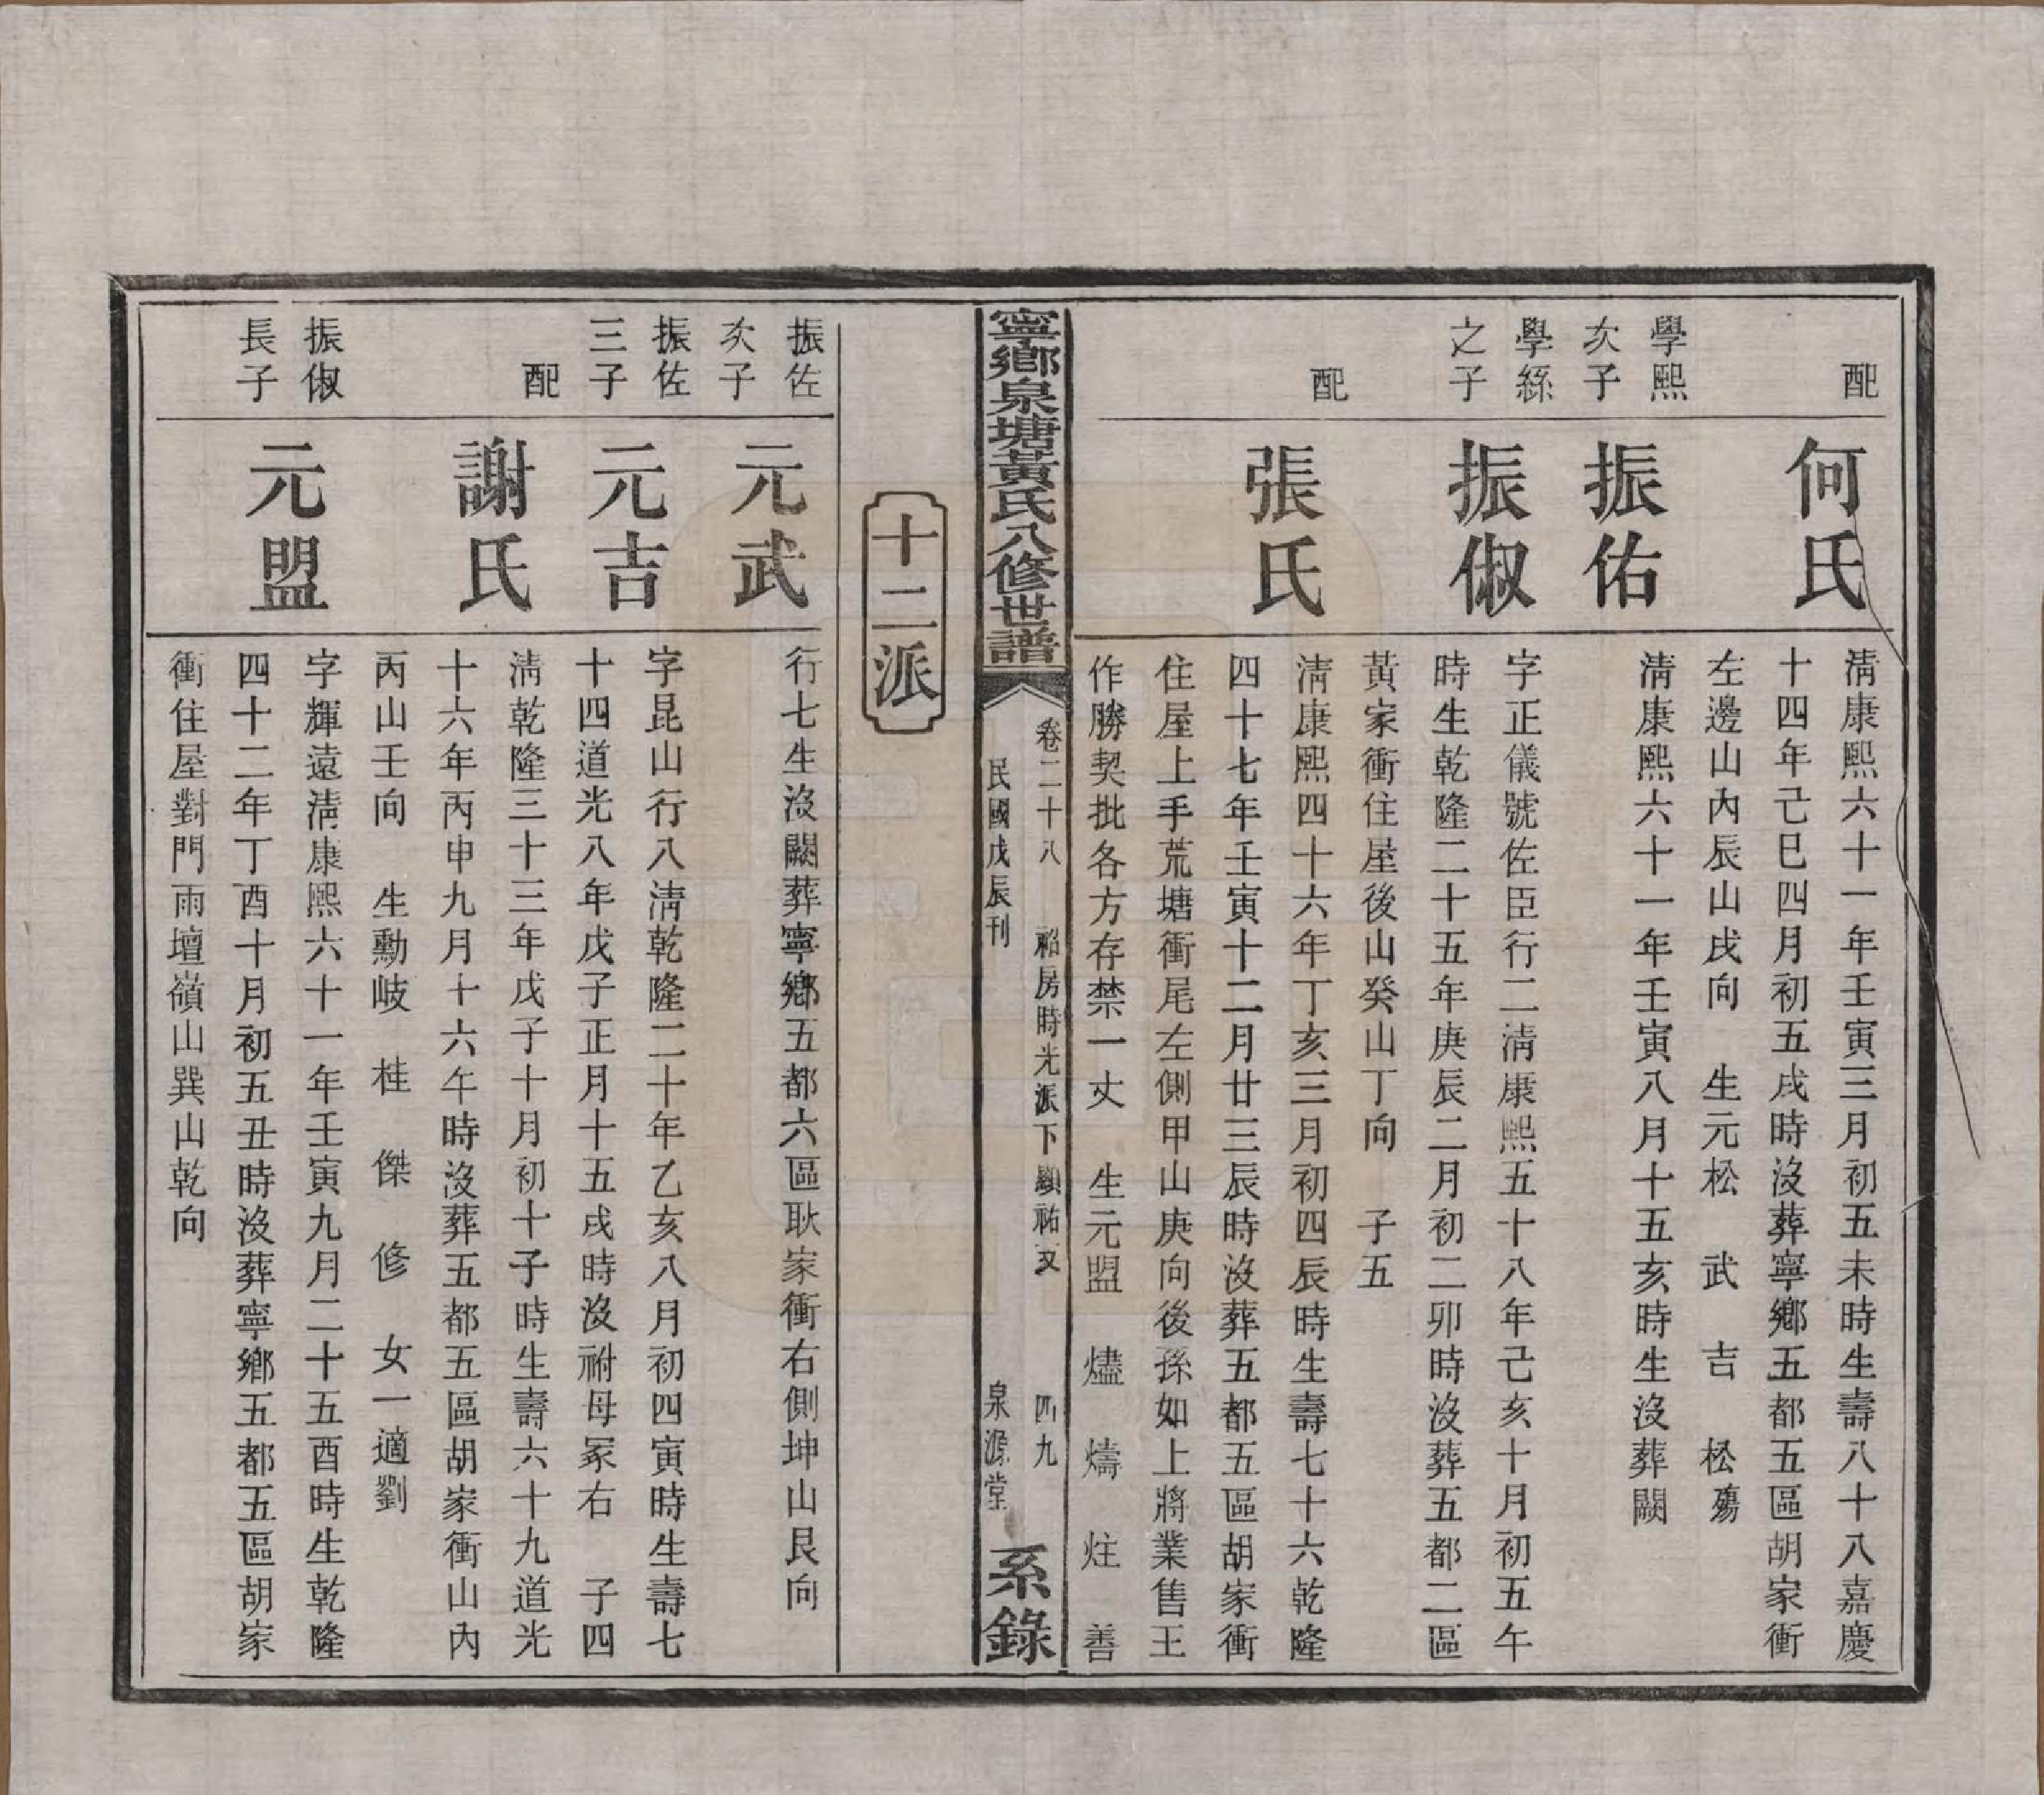 配
何氏
淸康熙六十一年壬寅三月初五未時生壽八十八嘉慶
十四年己巳四月初五戌時沒葬寧鄉五都五區胡家衝
左邊山內辰山戌向　生元松　武　吉　松殤
學熙
次子
振佑
淸康熙六十一年壬寅八月十五亥時生沒葬闕
學綵
之子
振俶
字正儀號佐臣行二淸康熙五十八年己亥十月初五午
時生乾隆二十五年庚辰二月初二卯時沒葬五都二區
黃家衝住屋後山癸山丁向　子五
配
張氏
淸康熙四十六年丁亥三月初四辰時生壽七十六乾隆
四十七年壬寅十二月廿三辰時沒葬五都五區胡家衝
住屋上手荒塘衝尾左側甲山庚向後孫如上將業售王
作勝契批各方存禁一丈　生元盟　燼　燽　炷　善
寧鄉泉塘黃氏八修世譜
卷二十八　祒房時光派下顯祐支　四九
民國戊辰刊　泉源堂
系錄
十二派
振佐
次子
元武
行七生沒闕葬寧鄉五都六區耿家衝右側坤山艮向
振佐
三子
元吉
字昆山行八淸乾隆二十年乙亥八月初四寅時生壽七
十四道光八年戊子正月十五戌時沒祔母冢右　子四
配
謝氏
淸乾隆三十三年戊子十月初十子時生壽六十九道光
十六年丙申九月十六午時沒葬五都五區胡家衝山內
丙山壬向　生勳岐　桂　傑　修　女一適劉
振俶
長子
元盟
字輝遠淸康熙六十一年壬寅九月二十五酉時生乾隆
四十二年丁酉十月初五丑時沒葬寧鄉五都五區胡家
衝住屋對門雨壇嶺山巽山乾向